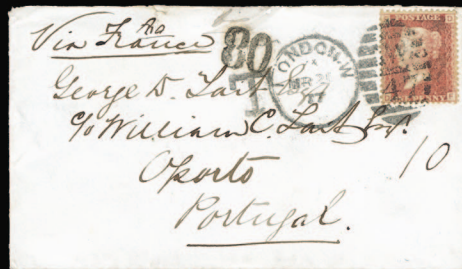 Via France
80
LONDON-W
POSTAGE
George D. Tait Esq
c/o William C. Tait Esqr.
10
Oporto
Portugal.